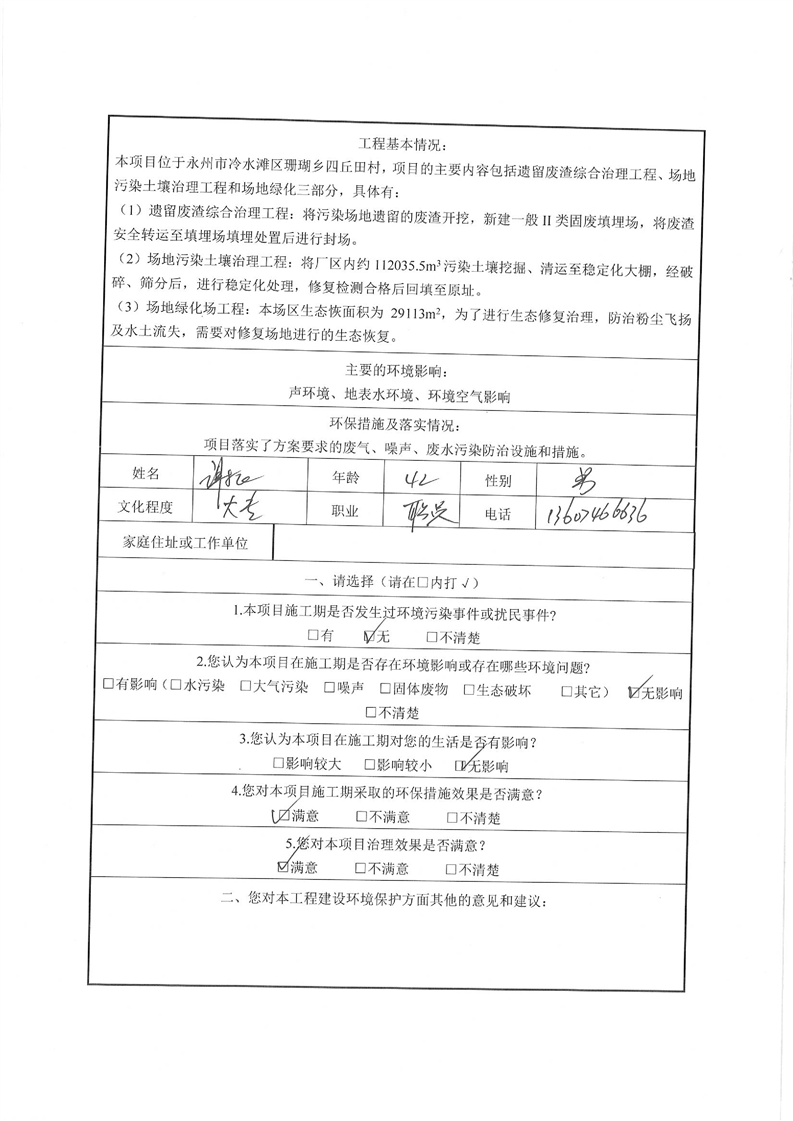 工程基本情况：
本项目位于永州市冷水滩区珊瑚乡四丘田村，项目的主要内容包括遗留废渣综合治理工程、场地
污染土壤治理工程和场地绿化三部分，具体有：
（1）遗留废渣综合治理工程：将污染场地遗留的废渣开挖，新建一般 II 类固废填埋场，将废渣
安全转运至填埋场填埋处置后进行封场。
（2）场地污染土壤治理工程：将厂区内约 112035.5m³污染土壤挖掘、清运至稳定化大棚，经破
碎、筛分后，进行稳定化处理，修复检测合格后回填至原址。
（3）场地绿化场工程：本场区生态恢面积为 29113m²，为了进行生态修复治理，防治粉尘飞扬
及水土流失，需要对修复场地进行的生态恢复。
主要的环境影响：
声环境、地表水环境、环境空气影响
环保措施及落实情况：
项目落实了方案要求的废气、噪声、废水污染防治设施和措施。
姓名 年龄 42 性别 男
文化程度 大专 职业 职员 电话 13607466636
家庭住址或工作单位
一、请选择（请在□内打√）
1.本项目施工期是否发生过环境污染事件或扰民事件?
□有 ☑无 □不清楚
2.您认为本项目在施工期是否存在环境影响或存在哪些环境问题?
□有影响（□水污染 □大气污染 □噪声 □固体废物 □生态破坏 □其它） ☑无影响
□不清楚
3.您认为本项目在施工期对您的生活是否有影响？
□影响较大 □影响较小 ☑无影响
4.您对本项目施工期采取的环保措施效果是否满意？
☑满意 □不满意 □不清楚
5.您对本项目治理效果是否满意？
☑满意 □不满意 □不清楚
二、您对本工程建设环境保护方面其他的意见和建议：